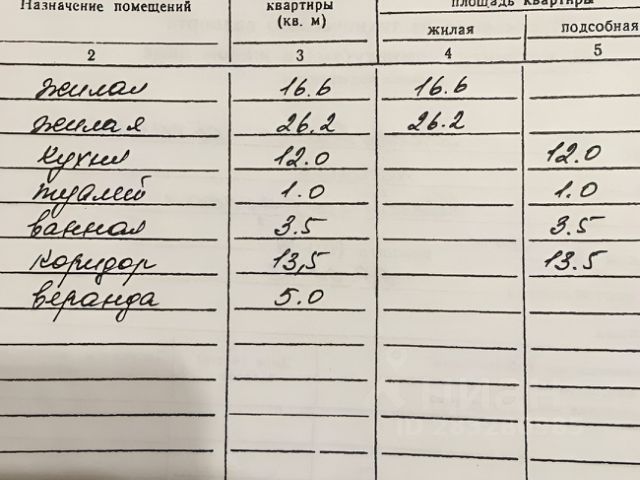 Назначение помещений квартиры площадь квартиры
(кв. м) жилая подсобная
2 3 4 5
жилая 16.6 16.6
жилая 26.2 26.2
кухня 12.0 12.0
туалет 1.0 1.0
ванная 3.5 3.5
коридор 13,5 13.5
веранда 5.0